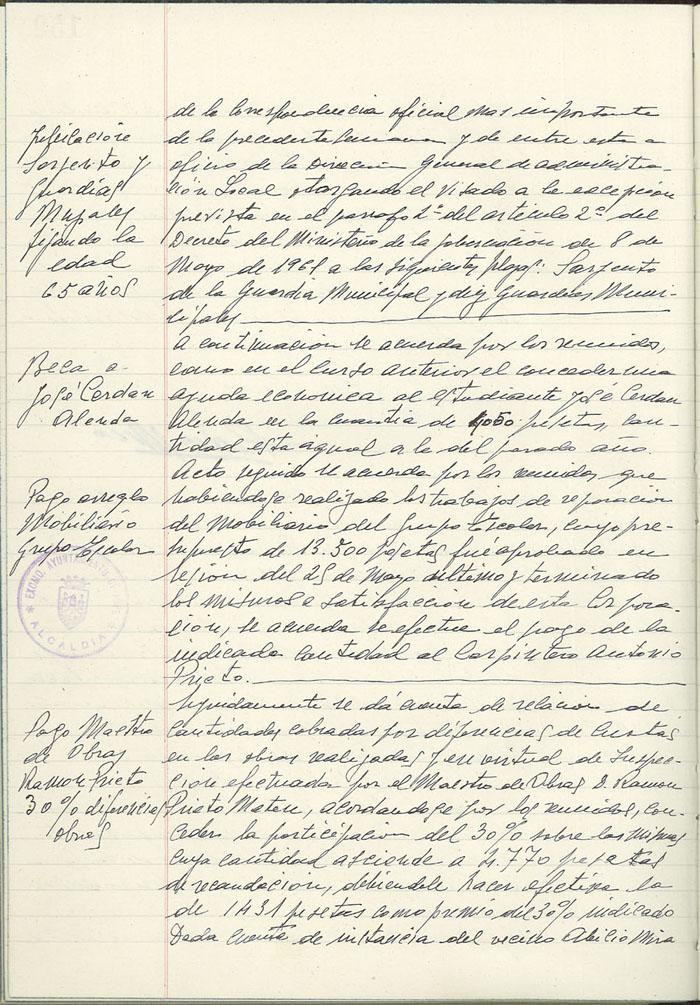 de la Correspondencia oficial mas importante
Jubilacion
Sargento y
Guardias
Mupales
fijando la
edad
65 años
de la precedente semana y de entre esta a
oficio de la Dirección General de administra-
ción Local otorgando el Visado a la excepcion
prevista en el parrafo 2º del articulo 2º del
Decreto del Ministerio de la Gobernación de 8 de
Mayo de 1961 a las siguientes plazas: Sargento
de la Guardia Municipal y diez Guardias Muni-
cipales
Beca a
José Cerdan
Alenda
A continuación se acuerda por los reunidos,
como en el Curso anterior el conceder una
ayuda economica al estudiante José Cerdan
Alenda en la cuantia de pesetas, can-
tidad esta igual a la del pasado año.
Pago arreglo
Mobiliario
Grupo Escolar
Acto seguido se acuerda por los reunidos, que
habiendose realizado los trabajos de reparacion
del Mobiliario del Grupo Escolar, cuyo pre-
supuesto de 13.500 pesetas fué aprobado en
sesion del 25 de Mayo ultimo y terminado
los mismos a satisfaccion de esta Corpora-
cion, se acuerda se efectue el pago de la
indicada cantidad al Carpintero Antonio
Prieto.
EXCMO. AYUNTAMIENTO
ALCALDIA
Pago Maestro
de Obras
Ramon Prieto
30% diferencias
obras
Seguidamente se dá cuenta de relacion de
Cantidades cobradas por diferencias de Cuotas
en las obras realizadas y en virtud de Inspec-
cion efectuada por el Maestro de Obras D. Ramon
Prieto acordandose por los reunidos, con-
ceder la participacion del 30% sobre las mismas
cuya cantidad asciende a 4.770 pesetas
de recaudacion, debiendole hacer efectiva la
de 1431 pesetas como premio del 30% indicado
Dada cuenta de instancia del vecino Abilio Mira